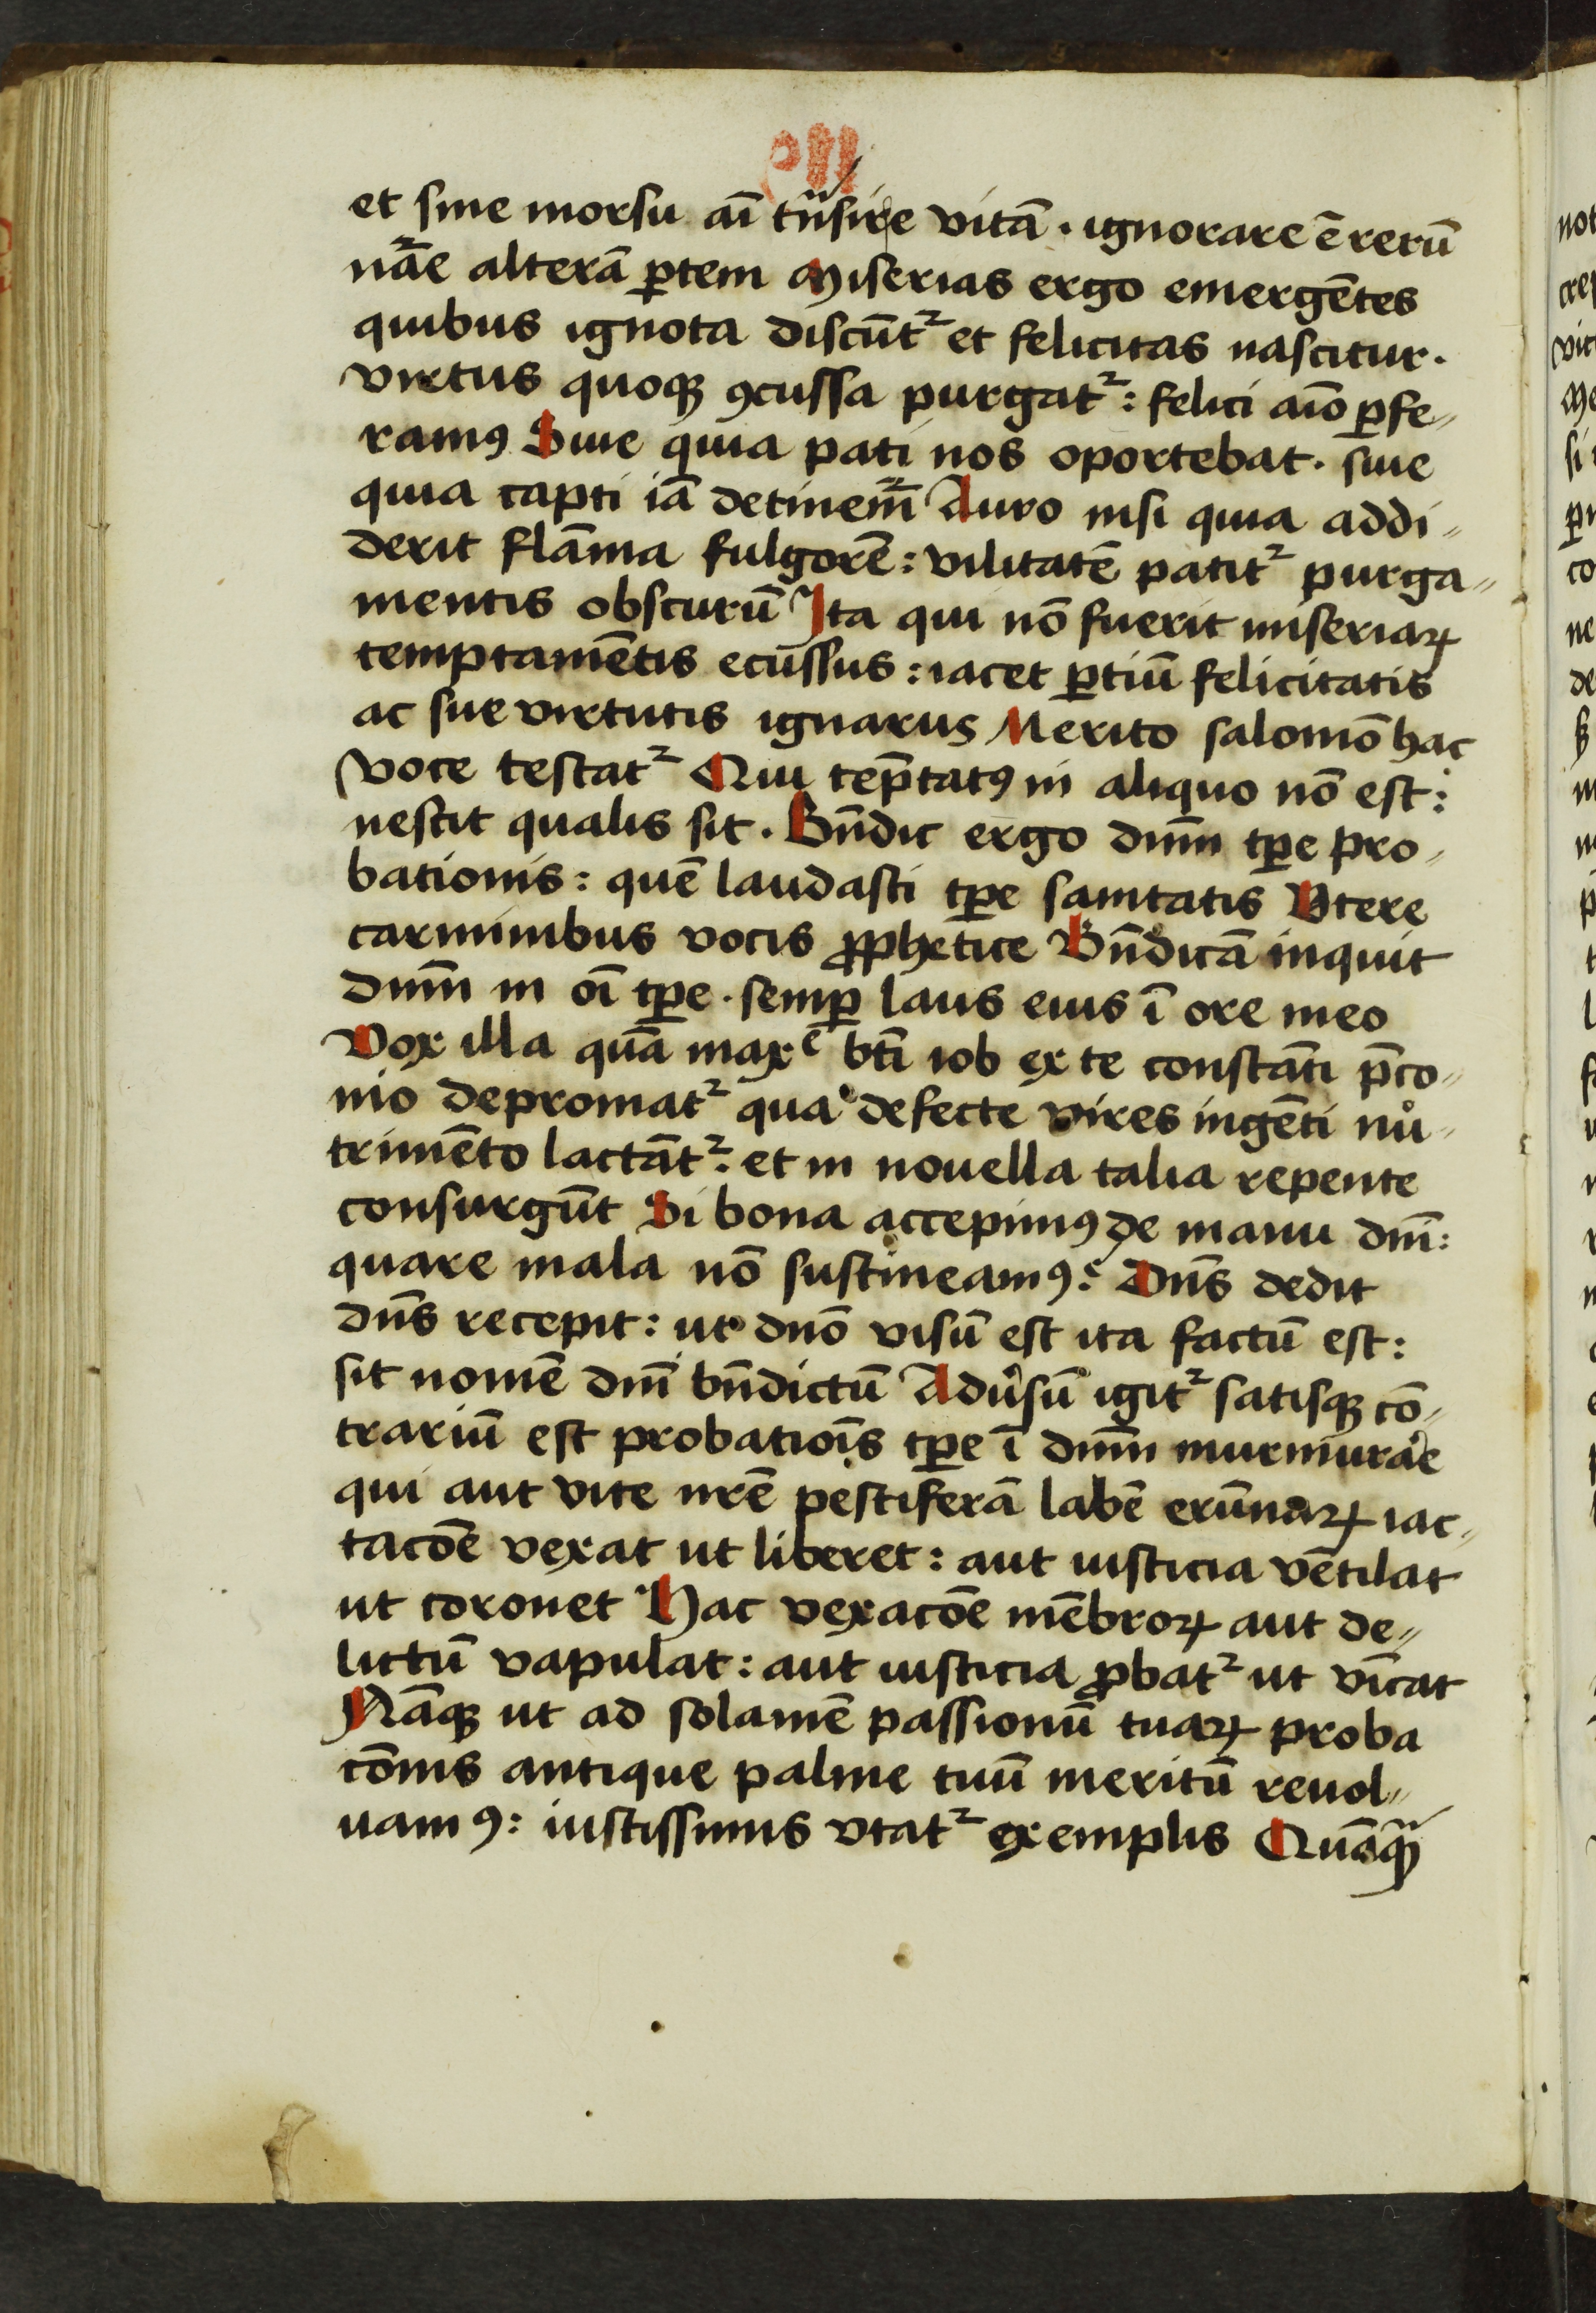 et sine morsu aī trͣnsire vitā · ignorare ē rerū
nāͤe alterā ꝑtem Miserias ergo emergētes
quibus ignota discūtᷣ et felicitas nascitur.
virtus quoqꝫ ꝯcussa purgatᷣ : felici aīo ꝑfe„
ramꝰ Siue quia pati nos oportebat. siue
quia capti iā detinemᷣ Auro nisi quia addi„
derit flāma fulgorē : vilitatē patitᷣ purga„
mentis obscurū Ita qui nō fuerit miseriaꝝ
temptamētis ecussus : iacet ꝑtiū felicitatis
ac sue virtutis ignarus Merito salomō hac
voce testatᷣ Qui tēptatꝰ in aliquo nō est :
nescit qualis sit. Bn̄dic ergo dn̄m tp̄e pro„
bationis : quē laudasti tp̄e sanitatis Vtere
carminibus vocis ꝓphetice Bn̄dicā inquit
dn̄m in oī tp̄e . semꝑ laus eius ī ore meo
Vox illa quā maxͤ bt̄i iob ex te constāti p̄co„
nio depromatᷣ qua defecte vires ingēti nu„
trimēto lactātᷣ : et in nouella talia repente
consurgūt Si bona accepimꝰ de manu dn̄i :
quare mala nō sustineamꝰ : Dn̄s dedit
dn̄s recepit : ut dn̄o visū est ita factū est :
sit nomē dn̄i bn̄dictū Adu̾sū igitᷣ satisqꝫ cō„
trariū est probatiōis tp̄e ī dn̄m murmurare
qui aut vite nr̄e pestiferā labē erūnaꝝ iac„
tacōe vexat ut liberet : aut iusticia vētilat
ut coronet Hac vexacōe mēbroꝝ aut de„
lictū vapulat : aut iusticia ꝓbatᷣ ut vīcat
Nāqꝫ ut ad solamē passionū tuaꝝ proba
cōnis antique palme tuū meritū reuol„
uamꝰ : iustissimus vtatᷣ exemplis Quāqꝫ̄